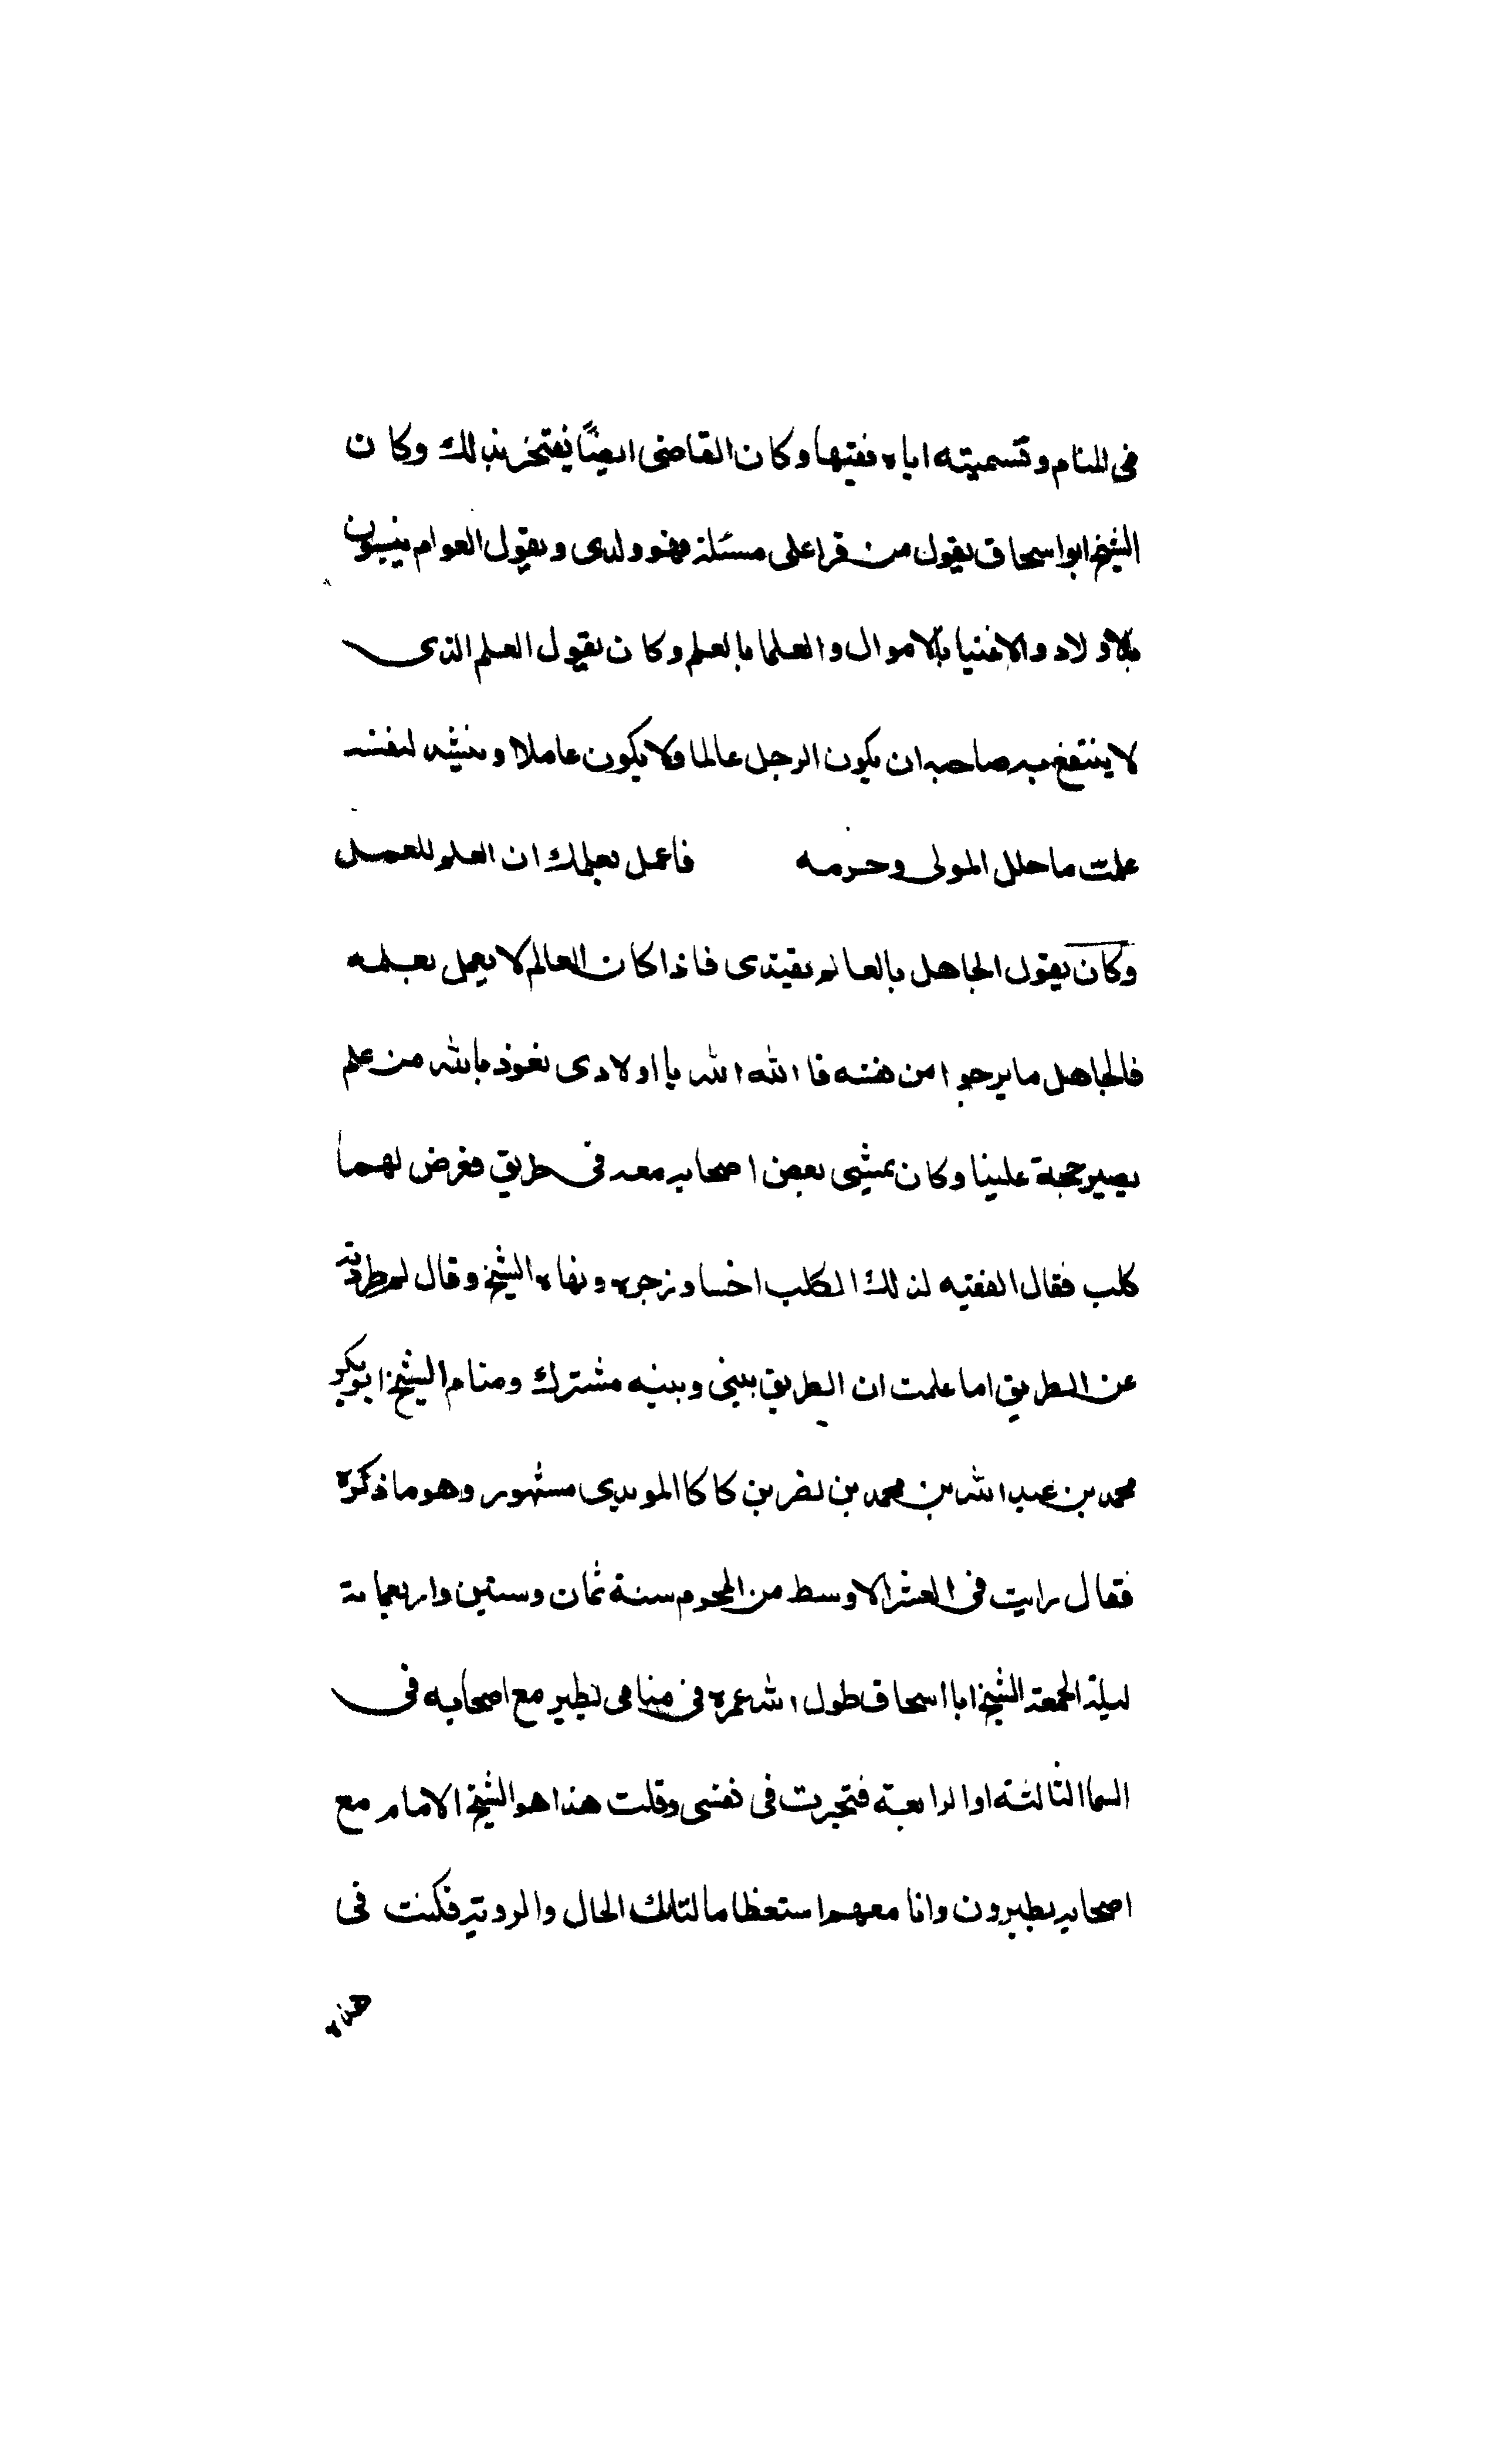 فى المنام وتسميته اياه فقيها وكان القاضى ايضًا يفتخر بذلك وكان
الشيخ ابو اسحاق يقول من قرا على مسئلة فهو ولدى ويقول العوام ينسبون
بالاولاد والاغنيا بالاموال والعلما بالعلم وكان يقول العلم الذى
لا ينتفع به صاحبه ان يكون الرجل عالما ولا يكون عاملا وينشد لنفسه
علمت ما حلل المولى وحرمه فاعمل بعلمك ان العلم للعمل
وكان يقول الجاهل بالعالم يقتدى فاذا كان العالم لا يعمل بعلمه
فالجاهل ما يرجوا من نفسه فا الله الله يا اولادى نعوذ بالله من علم
يصير حجة علينا وكان يمشى بعض اصحابه معه فى طريق فعرض لهما
كلب فقال الفقيه لذلك الكلب اخسا وزجره ونهاه الشيخ وقال لم طردته
عن الطريق اما علمت ان الطريق بينى وبينه مشترك ومنام الشيخ ابو بكر
محمد بن عبد الله بن محمد بن نصر بن كاكا المويدى مشهور وهو ما ذكره
فقال رايت فى العشر الاوسط من المحرم سنة ثمان وستين واربعماية
ليلة الجمعة الشيخ ابا اسحاق طول الله عمره فى منامى يطير مع اصحابه فى
السما الثالثة او الرابعة فتحيرت فى نفسى وقلت هذا هو الشيخ الامام مع
اصحابه يطيرون وانا معهم استعظاما لتلك الحال والروية فكنت فى
هذه